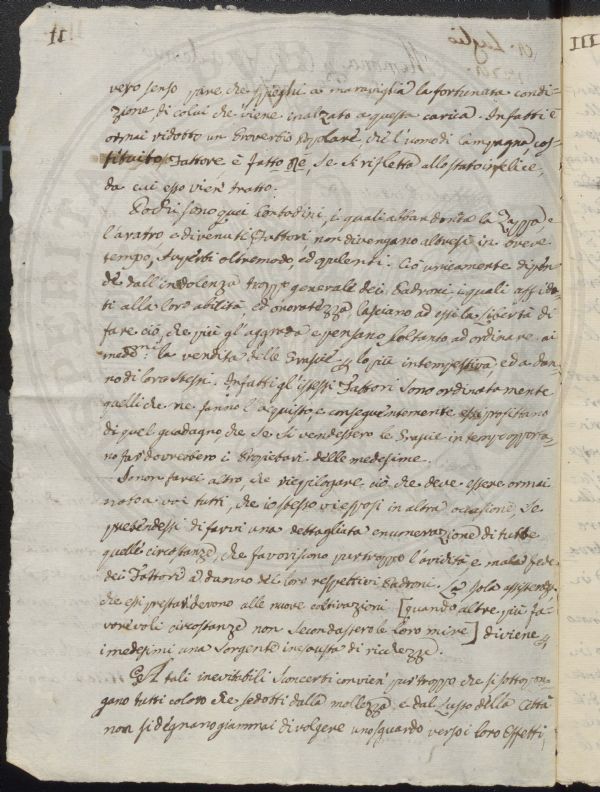 11
vero senso pare che spieghi a maraviglia la fortunata condi=
zione, di colui che viene inalzato a questa carica. Infatti è
ormai ridotto un Proverbio Popolare, che l'uomo di Campagna, cos=
tituito Fattore è fatto Re, se si rifletta allo stato infelice,
da cui esso vien tratto.
Pochi sono quei Contadini, i quali abbandonata la Zappa, e
l'aratro, e divenuti Fattori non divengano altresì in breve
tempo, superbi oltremodo, ed opulenti. Ciò unicamente dipen=
de dall'indolenza troppo generale dei Padroni i quali affida=
ti alla loro abilità, ed onoratezza lasciano ad essi la libertà di
fare ciò, che più gl'aggrada e pensano soltanto ad ordinare ai
medmi: la vendita delle Grascie lo più intempestiva, e da dan=
no di loro stessi. Infatti gl'istessi Fattori sono ordinatamente
quelli che ne fanno l'acquisto, e conseguentemente essi profittano
di quel guadagno, che se si vendessero le Grascie in tempo opportu=
no far dovrebbero i Proprietari delle medesime.
Io non farei altro, che riepilogare ciò che deve essere ormai
noto a voi tutti, che io stesso vi esposi in altra occasione, se
pretendessi di farvi una dettagliata enumerazione di tutte
quelle circostanze, che favoriscono pur troppo l'avidità e mala fede
dei Fattori a danno dei loro respettivi Padroni. La sola assistenza,
che essi prestar devono alle nuove coltivazioni [quando altre più fa=
vorevoli circostanze non secondassero le loro mire] diviene
i medesimi una sorgente inesausta di ricchezze.
A tali inevitabili sconcerti convien pur troppo che si sottopon=
gano tutti coloro che sedotti dalla mollezza, e dal Lusso della Città
non si degnano giammai di volgere uno sguardo verso i loro Effetti